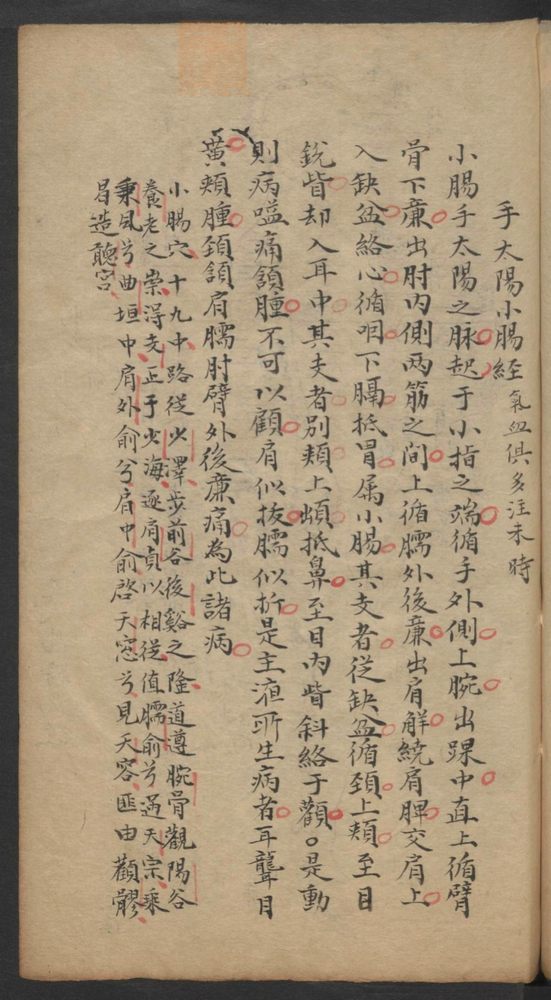 手太陽小腸經 氣血俱多注未時
小腸手太陽之脉起于小指之端循手外側上腕出踝中直上循臂
骨下廉出肘内側兩筋之间上循臑外後廉出肩解繞肩脾交肩上
入缺盆絡心循咽下膈抵胃属小腸其支者從缺盆循頚上頬至目
銳眥却入耳中其支者別頬上䪼抵鼻至目内眥斜絡于顴○是動
則病嗌痛頷腫不可以顧肩似拔臑似折是主液所生病者耳聾目
黃頬腫頚頷肩臑肘臂外後廉痛為此諸病
小腸穴十九中路從少澤步前谷後谿之隆道遵腕骨觀陽谷
養老之崇得支正于少海逐肩貞以相從值臑俞兮過天宗乘
秉風兮曲垣中肩外俞兮肩中俞啓天窓兮見天容匪由顴髎
曷造聽宮